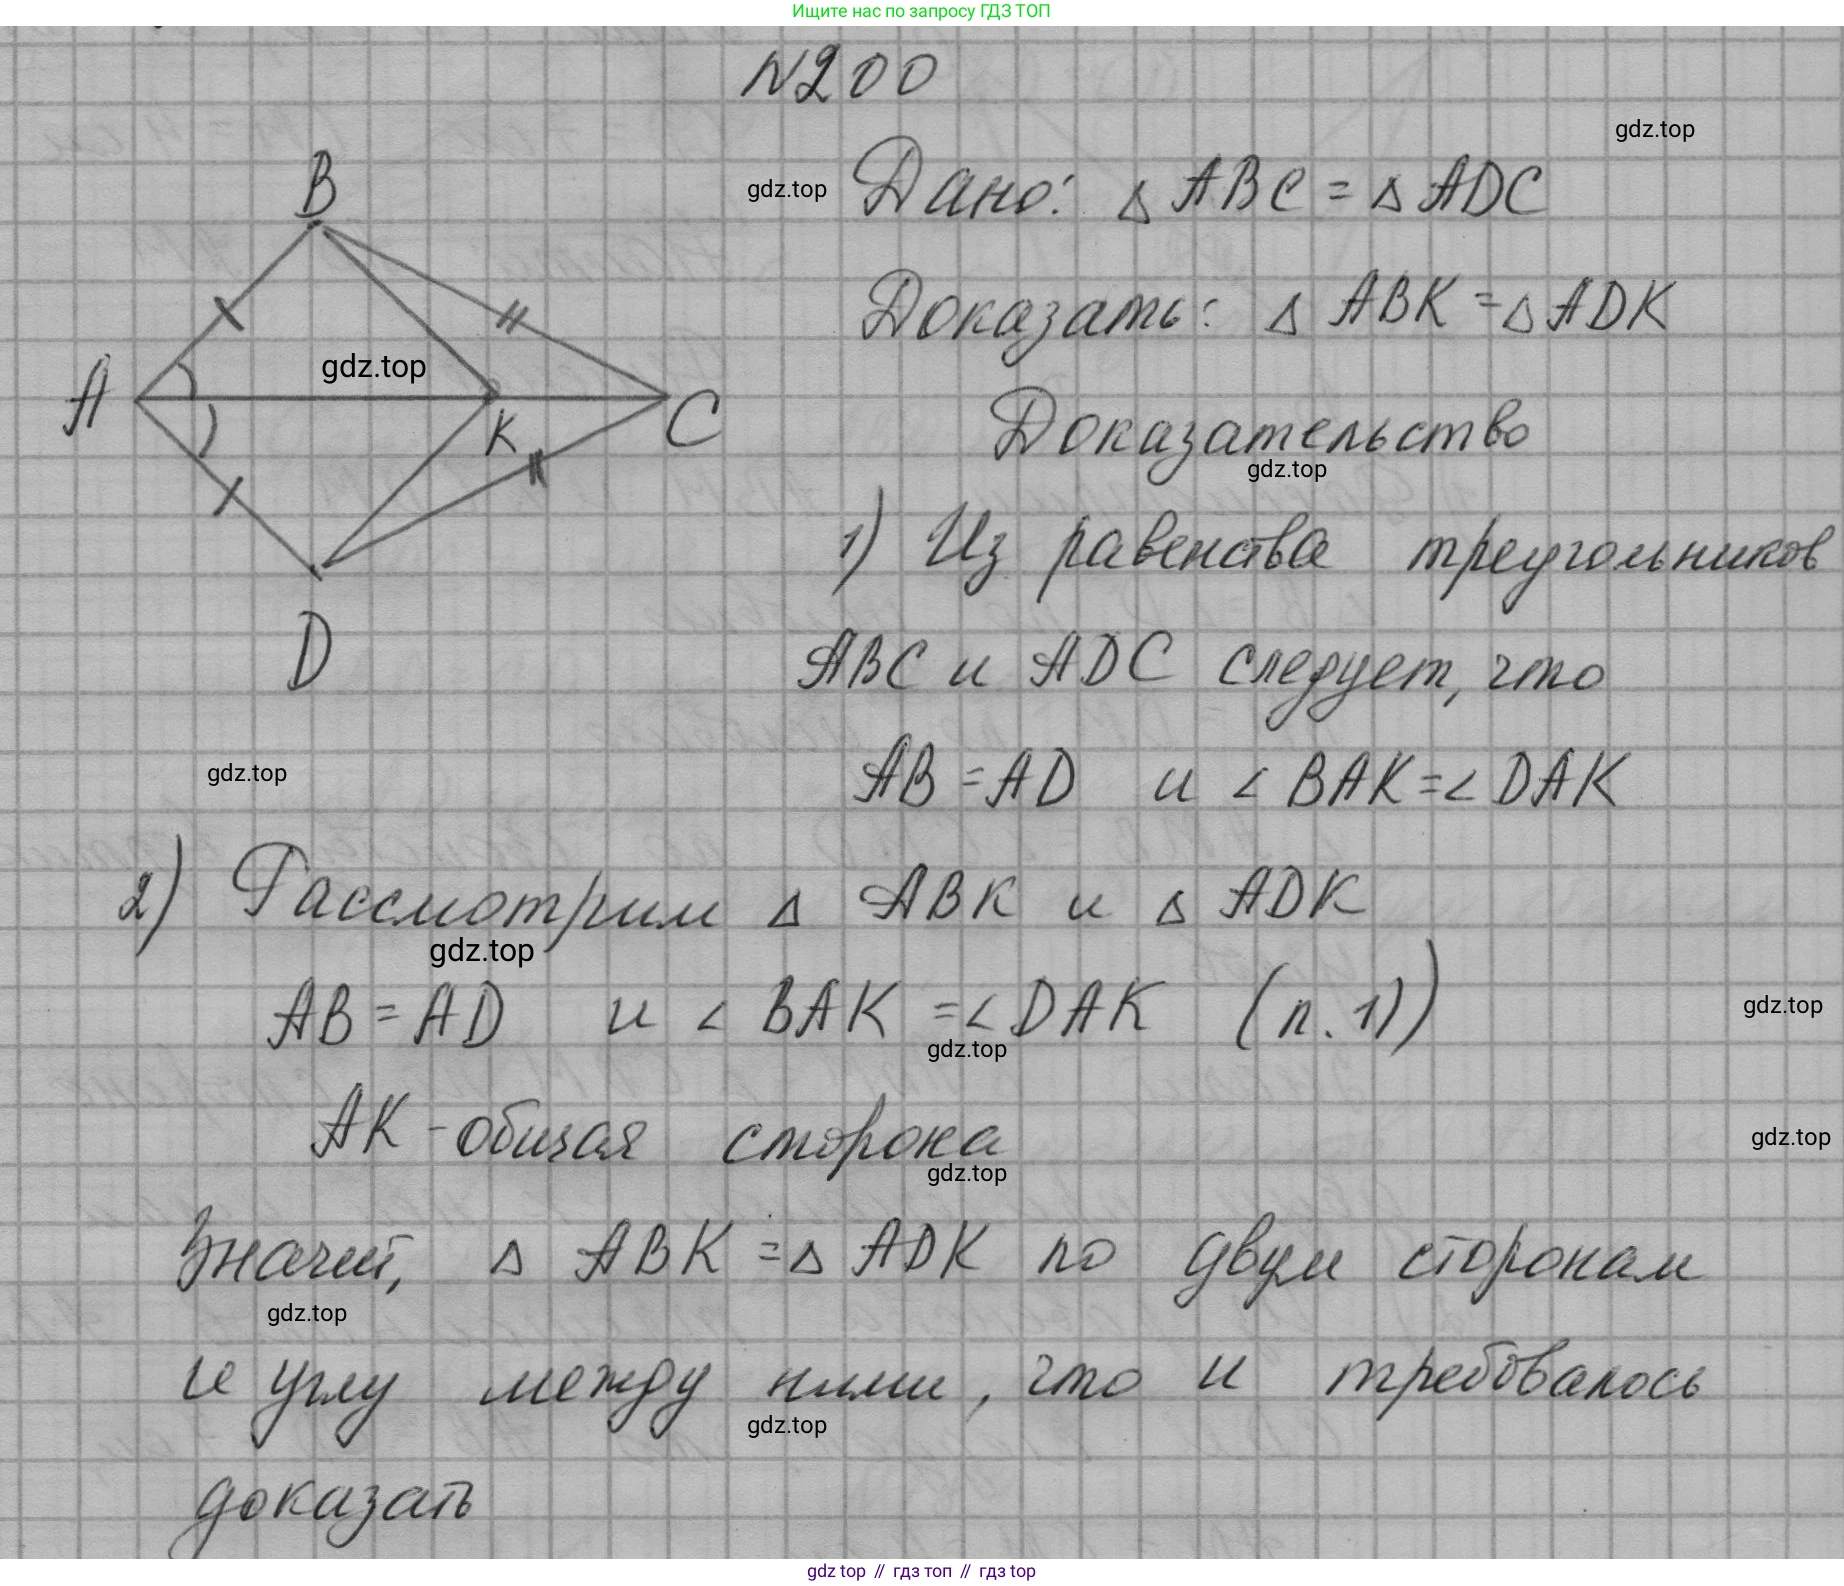 Ищите нас по запросу ГДЗ ТОП
N200
gdz.top
gdz.top
Дано: △ ABC = △ ADC
B
Доказать: △ ABK = △ ADK
gdz.top
A
K
C
Доказательство
gdz.top
1) Из равенства треугольников
D
ABC и ADC следует, что
gdz.top
AB = AD и ∠ BAK = ∠ DAK
2) Рассмотрим △ ABK и △ ADK
gdz.top
AB = AD и ∠ BAK = ∠ DAK (п. 1))
gdz.top
gdz.top
AK - общая сторона
gdz.top
gdz.top
Значит, △ ABK = △ ADK по двум сторонам
gdz.top
и углу между ними, что и требовалось
gdz.top
доказать
gdz top // гдз топ // гдз top